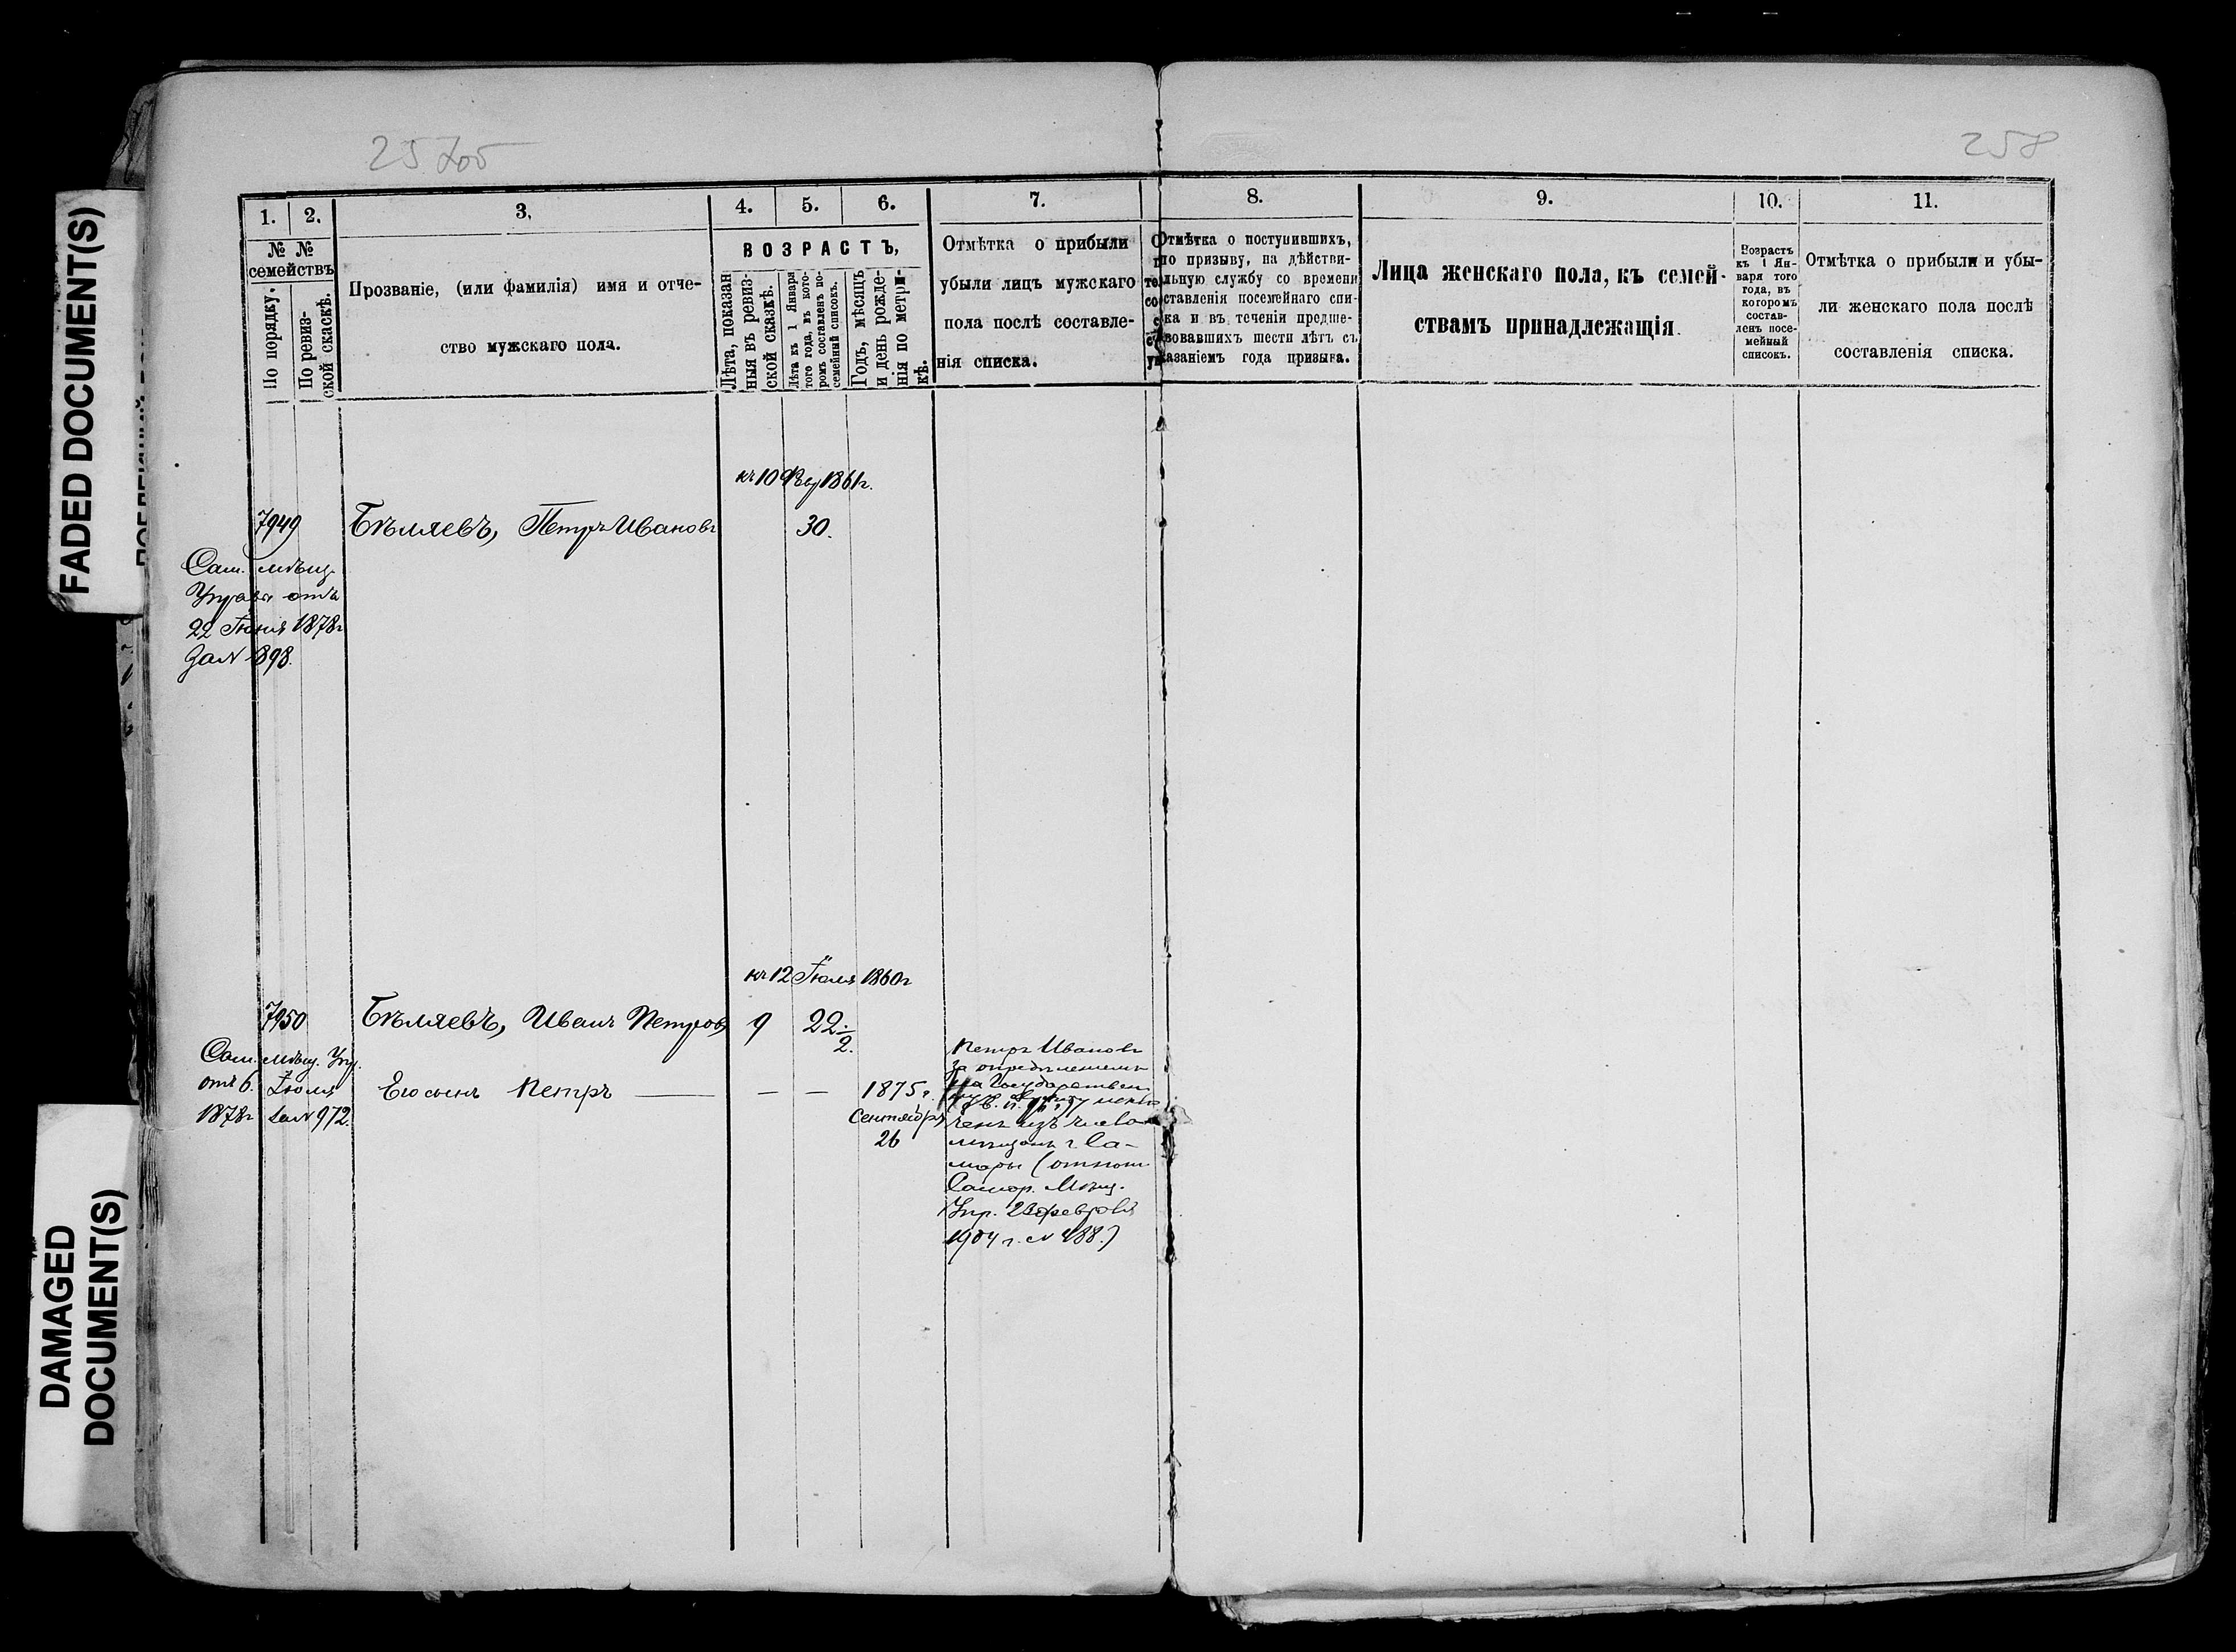 FADED DOCUMENT(S)
DAMAGED
DOCUMENT(S)
258
1.
2.
3.
4.
5.
6.
7.
8.
9.
10.
11.
№ №
семействъ
По порядку.
По ревиз-
ской скаскѣ.
Прозваніе, (или фамилія) имя и отче-
ство мужскаго пола.
ВОЗРАСТЪ,
Лѣта, показан
ныя въ ревиз-
ской сказкѣ.
Лѣта къ 1 Января
того года, въ кото-
ромъ составленъ по-
семейный списокъ.
Годъ, мѣсяцъ
и день рожде-
нія по метри-
кѣ.
Отмѣтка о прибыли
убыли лицъ мужскаго
пола послѣ составле-
нія списка.
Отмѣтка о поступившихъ,
по призыву, на дѣйстви-
тельную службу со времени
составленія посемейнаго спи-
ска и въ теченіи предше-
ствовавшихъ шести лѣтъ съ
указаніемъ года призыва.
Лица женскаго пола, къ семей-
ствамъ принадлежащія.
Возрастъ
къ 1 Ян-
варя того
года, въ
которомъ
состав-
ленъ посе-
мейный
списокъ.
Отмѣтка о прибыли и убы-
ли женскаго пола послѣ
составленія списка.
1861г.
7949 Бѣляевъ, Петръ Ивановъ 30.
Сам. мѣщ.
Управы отъ
22 Іюня 1878г
за № 898.
къ 12 Іюля 1860г
7950 Бѣляевъ, Иванъ Петровъ 9 22 1/2.
Сам. мѣщ. Упр.
отъ 6. Іюля
1878г за № 972.
Его сынъ Петръ — — 1875 г.
Сентября
26
Петръ Ивановъ
за опредѣленіемъ
на Государствен
ченъ изъ числа
мѣщанъ г. Са-
мары (отнош
Самар. Мѣщ.
Упр. февраля
1904 г. № 488.)